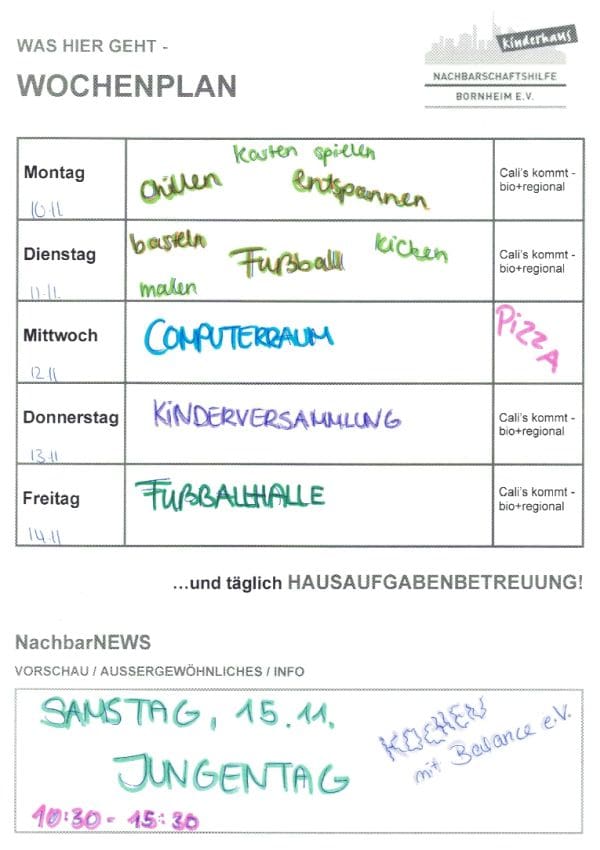 WAS HIER GEHT -
WOCHENPLAN
Kinderhaus
NACHBARSCHAFTSHILFE
BORNHEIM E.V.
Montag
10.11
Karten spielen
chillen entspannen
Cali's kommt -
bio+regional
Dienstag
11.11.
basteln Fußball kicken
malen
Cali's kommt -
bio+regional
Mittwoch
12.11
COMPUTERRAUM
PIZZA
Donnerstag
13.11
KINDERVERSAMMLUNG
Cali's kommt -
bio+regional
Freitag
14.11
FUßBALLHALLE
Cali's kommt -
bio+regional
...und täglich HAUSAUFGABENBETREUUNG!
NachbarNEWS
VORSCHAU / AUSSERGEWÖHNLICHES / INFO
SAMSTAG, 15.11.
JUNGENTAG
10:30 - 15:30
KOCHEN
mit Balance e.V.